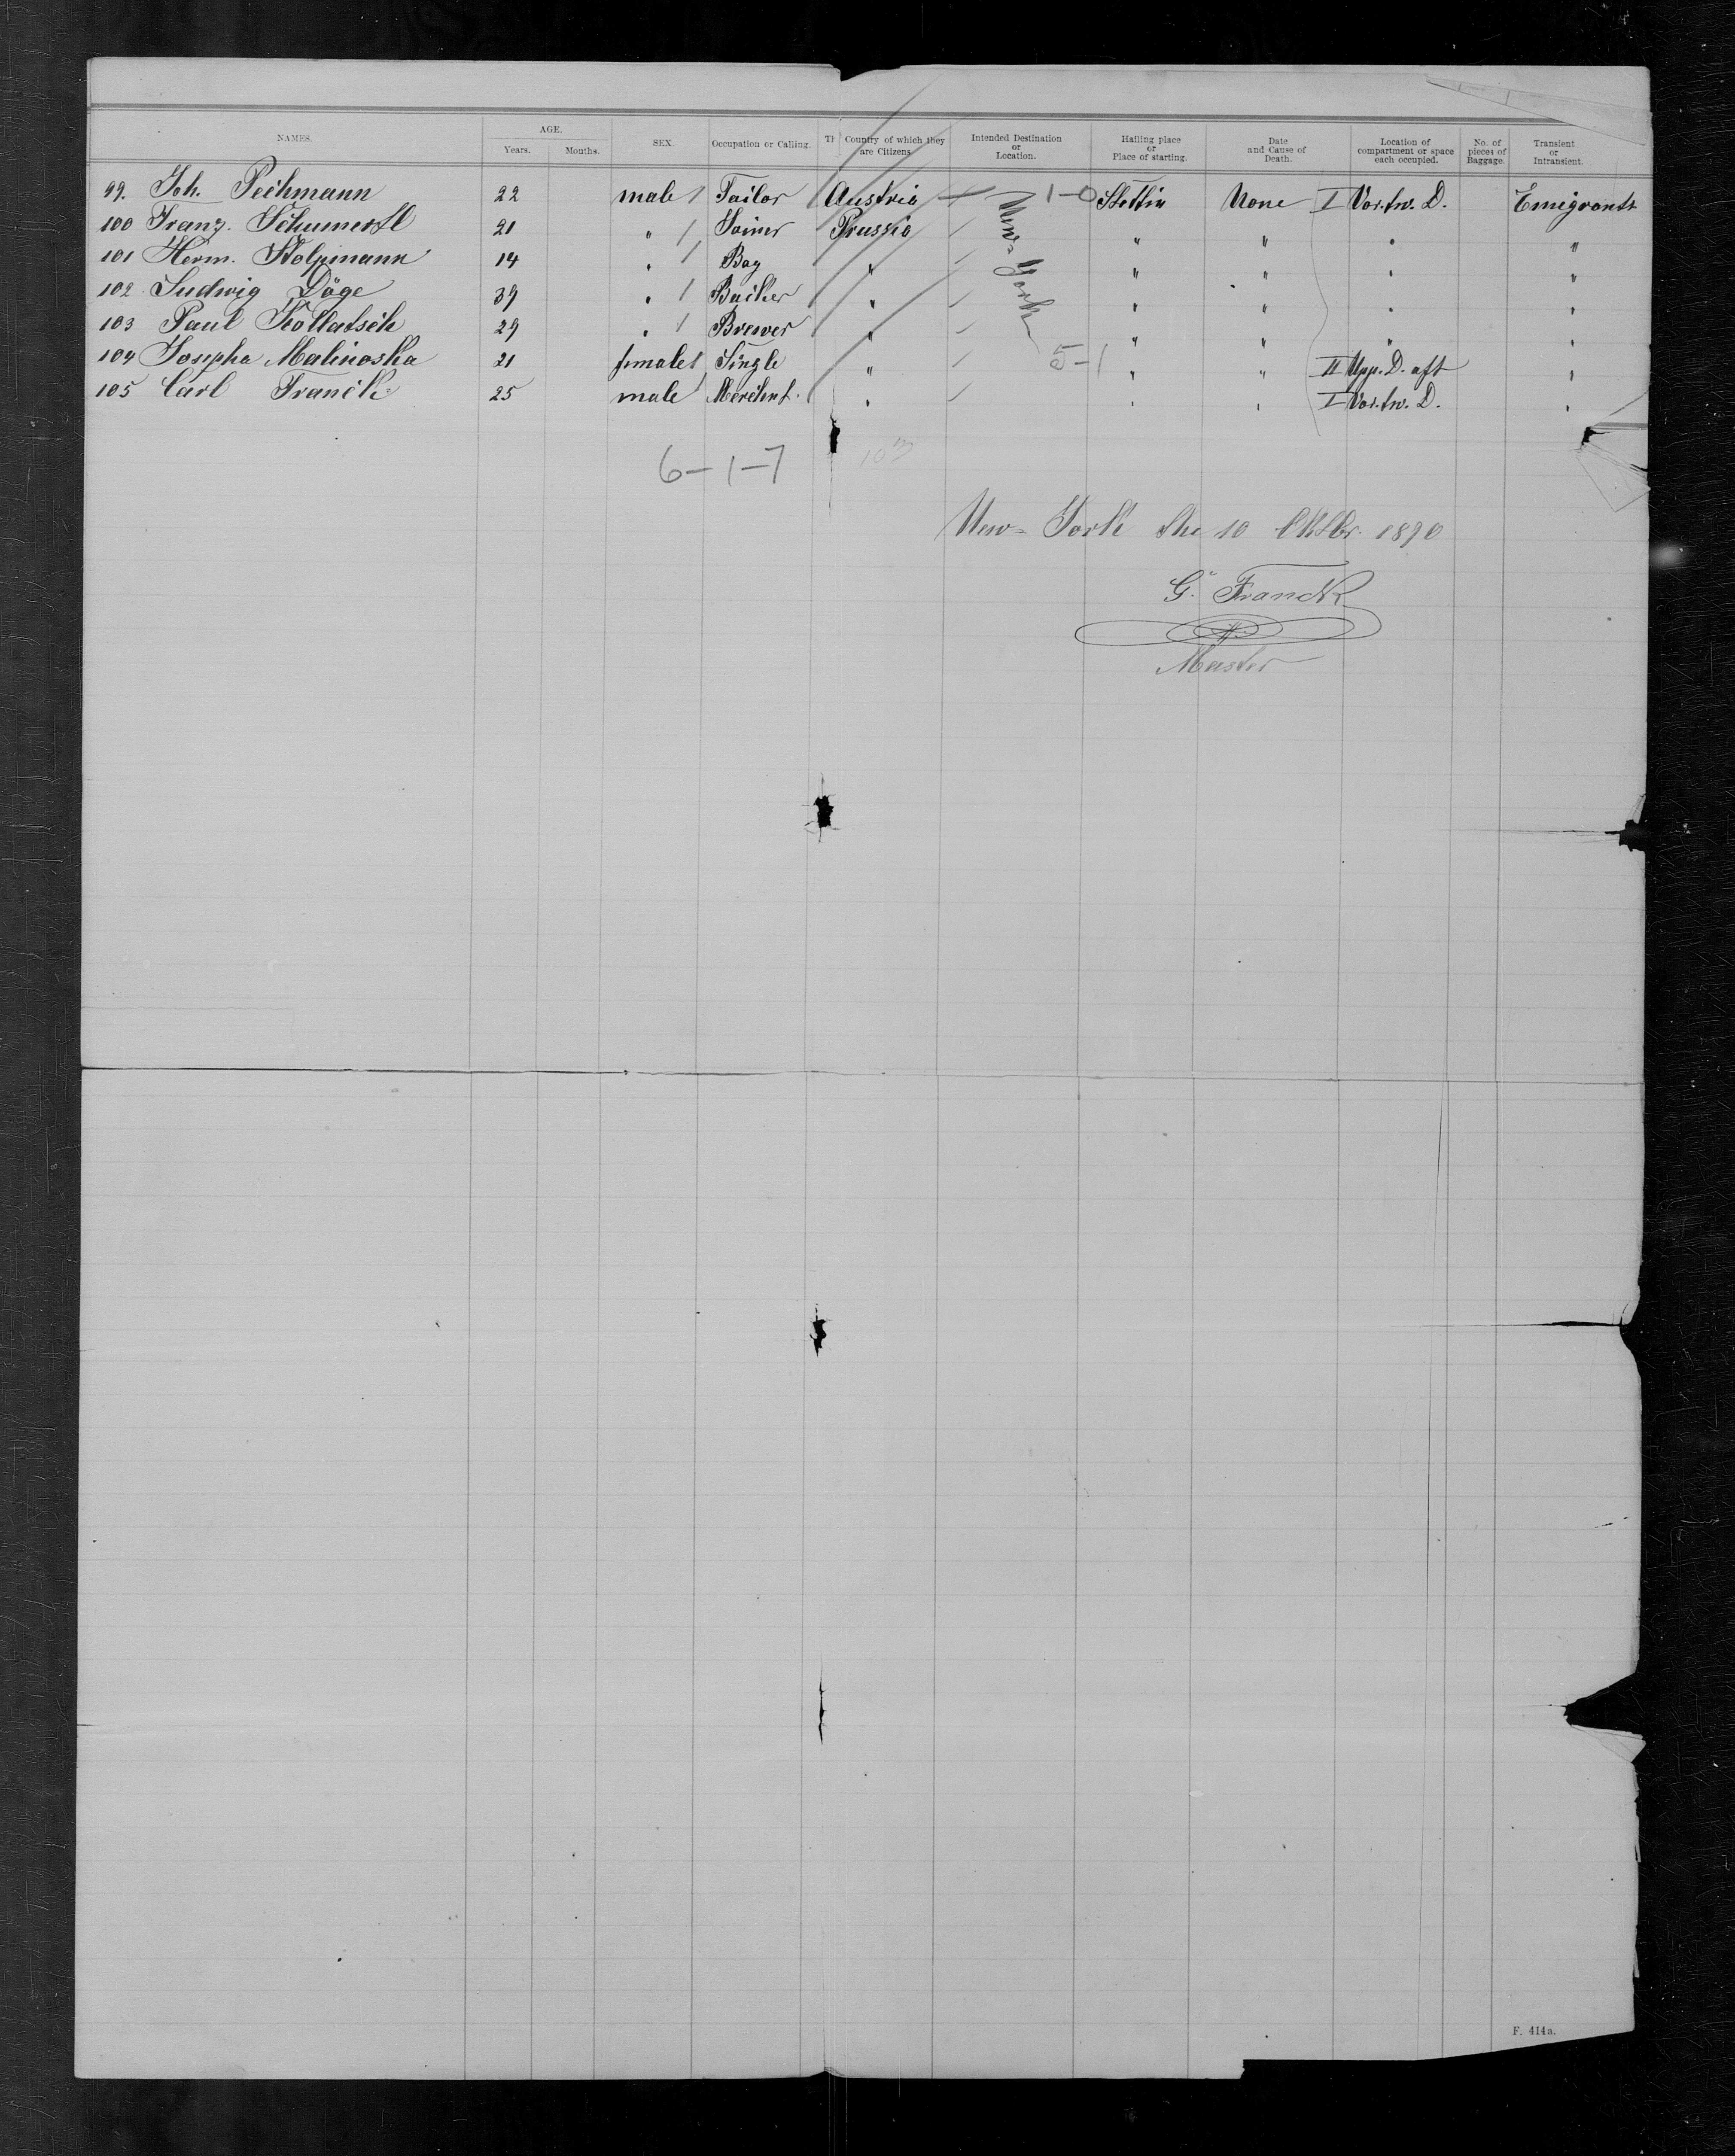 NAMES. AGE. Years. Months. SEX. Occupation or Calling. Th Country of which they are Citizens. Intended Destination or Location. Hailing place or Place of starting. Date and Cause of Death. Location of compartment or space each occupied. No. of pieces of Baggage. Transient or Intransient.
99. Joh. Pechmann 22 male 1 Tailor Austria 1-0 Stettin None I Vor.tw. D. Emigrants
100 Franz. 21 " 1 Joiner Prussia " " " "
101 Herm. Stolpmann 14 " 1 Boy " " " " "
102 Ludwig Döge 39 " 1 " " " " "
103 Paul Kollatsch 29 " 1 Brewer " " " " "
104 Josepha Malinoska 21 female 1 Single " 5-1 " " II Upp. D. aft "
105 Carl Franck 25 male Merchnt. " " " I Vor.tw. D. "
New-York
6-1-7 103
New-York the 10 Oktbr. 1890
G. Franck
Master
F. 414a.